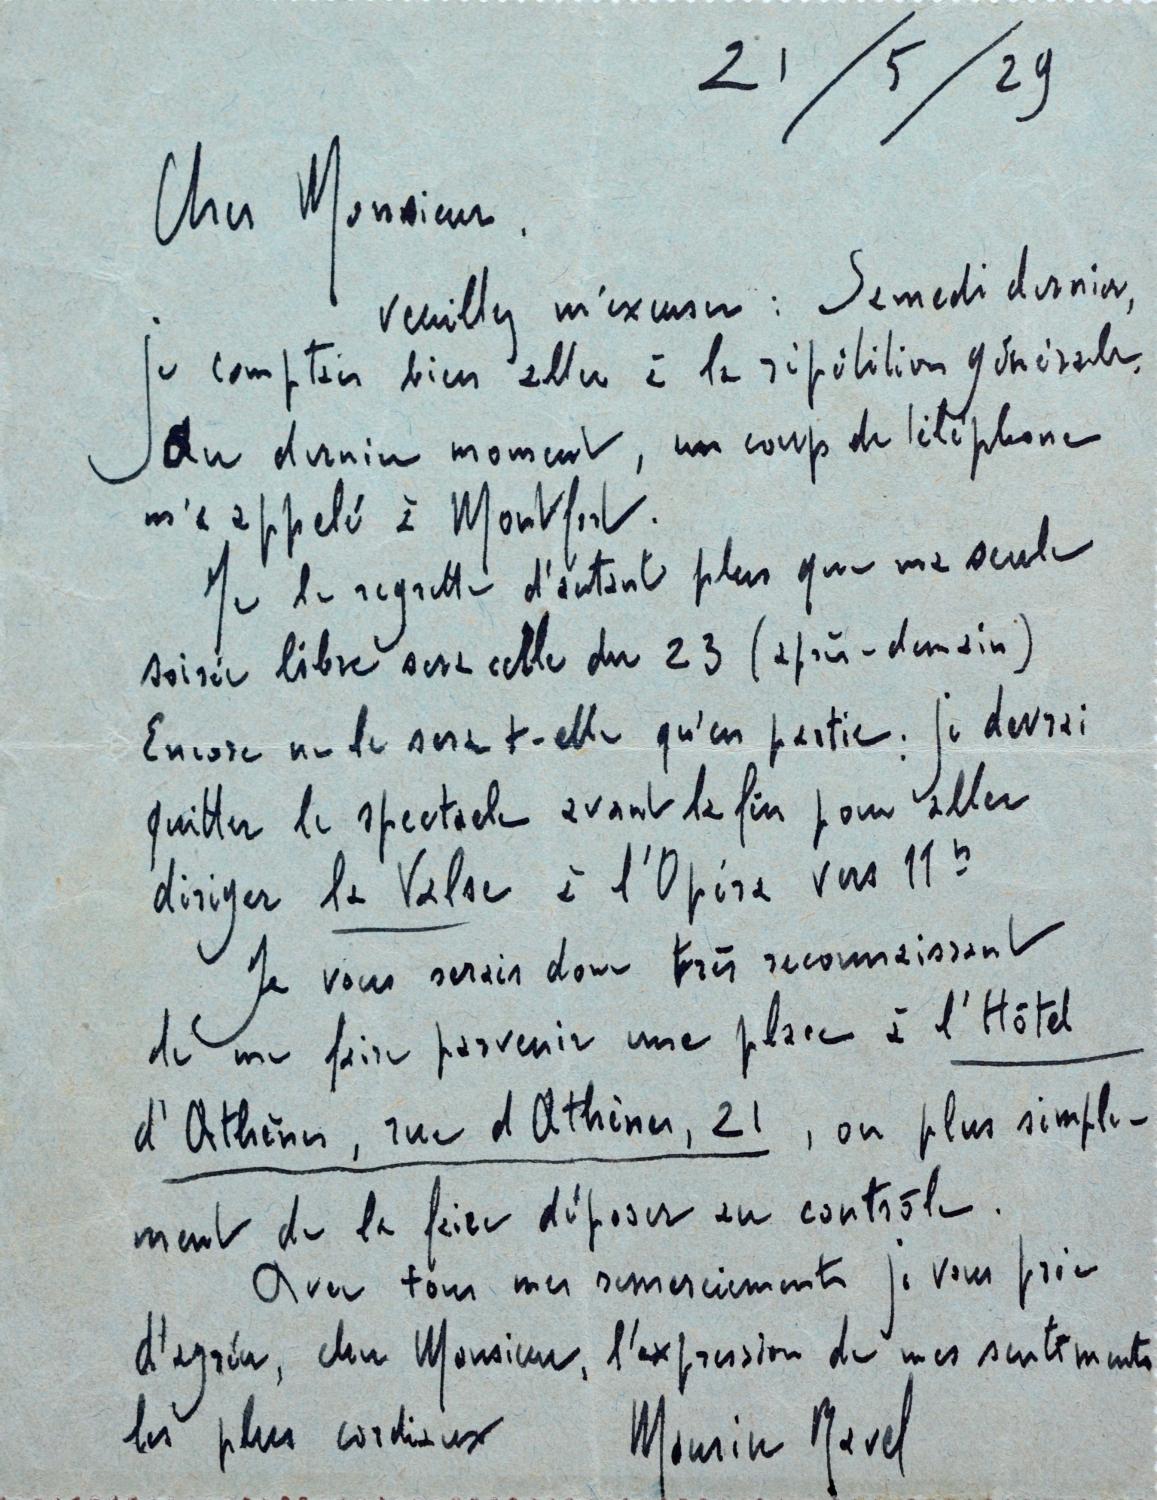 21/5/29
Cher Monsieur,
veuillez m'excuser : Samedi dernier,
je comptais bien aller à la répétition générale.
Au dernier moment, un coup de téléphone
m'a appelé à Montfort.
Je le regrette d'autant plus que ma seule
soirée libre sera celle du 23 (après-demain)
Encore ne le sera t-elle qu'en partie : je devrai
quitter le spectacle avant la fin pour aller
diriger la Valse à l'Opéra vers 11h
Je vous serais donc très reconnaissant
de me faire parvenir une place à l'Hôtel
d'Athènes, rue d'Athènes, 21, ou plus simple-
ment de la faire déposer au contrôle.
Avec tous mes remerciements je vous prie
d'agréer, cher Monsieur, l'expression de mes sentiments
les plus cordiaux
Maurice Ravel